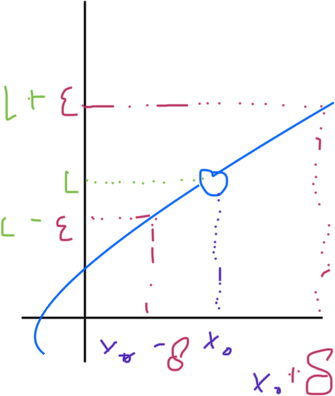 L + ε
L
L - ε
x₀ - δ
x₀
x₀ + δ